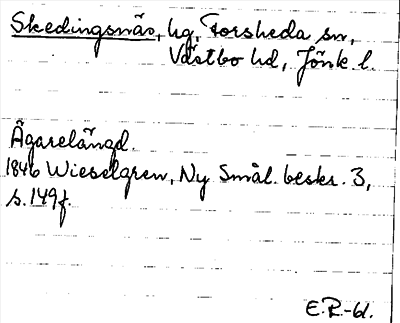 Skedingsnäs, hg, Forsheda sn,
Västbo hd, Jönk. l.
Ägarelängd.
1846 Wieselgren, Ny Smål. beskr. 3,
s. 149f.
E.R-61.